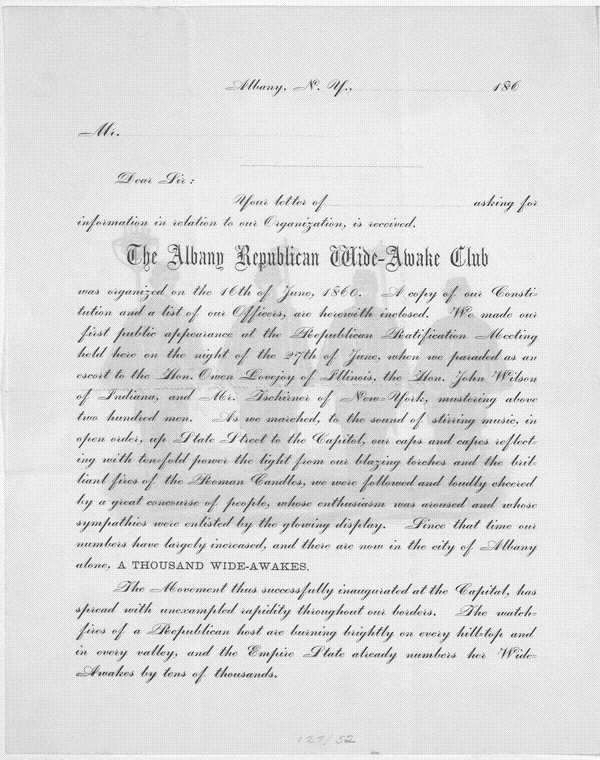 Albany, N. Y., 186
Mr.
Dear Sir:
Your letter of asking for
information in relation to our Organization, is received.
The Albany Republican Wide-Awake Club
was organized on the 16th of June, 1860. A copy of our Consti-
tution and a list of our Officers, are herewith inclosed. We made our
first public appearance at the Republican Ratification Meeting
held here on the night of the 27th of June, when we paraded as an
escort to the Hon. Owen Lovejoy of Illinois, the Hon. John Wilson
of Indiana, and Mr. Tschirner of New-York, mustering above
two hundred men. As we marched, to the sound of stirring music, in
open order, up State Street to the Capitol, our caps and capes reflect-
ing with ten-fold power the light from our blazing torches and the bril-
liant fires of the Roman Candles, we were followed and loudly cheered
by a great concourse of people, whose enthusiasm was aroused and whose
sympathies were enlisted by the glowing display. Since that time our
numbers have largely increased, and there are now in the city of Albany
alone, A THOUSAND WIDE-AWAKES.
The Movement thus successfully inaugurated at the Capital, has
spread with unexampled rapidity throughout our borders. The watch-
fires of a Republican host are burning brightly on every hill-top and
in every valley, and the Empire State already numbers her Wide-
Awakes by tens of thousands.
127/52